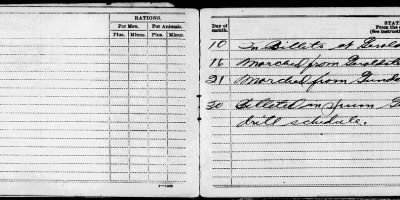 RATIONS.
For Men. For Animals.
Plus. Minus. Plus. Minus.
3—1402
Day of month. STAT
From the
(See instructi
10 In Billets at
16 Marched from
21 Marched from
30 Billeted
drill schedule.